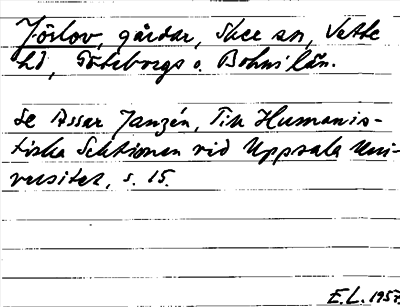 Jörlov, gårdar, Skee sn, Vette
hd, Göteborgs o. Bohus län.
Se Assar Janzén, Till Humanis-
tiska Sektionen vid Uppsala Uni-
versitet, s. 15.
E.L. 1957.